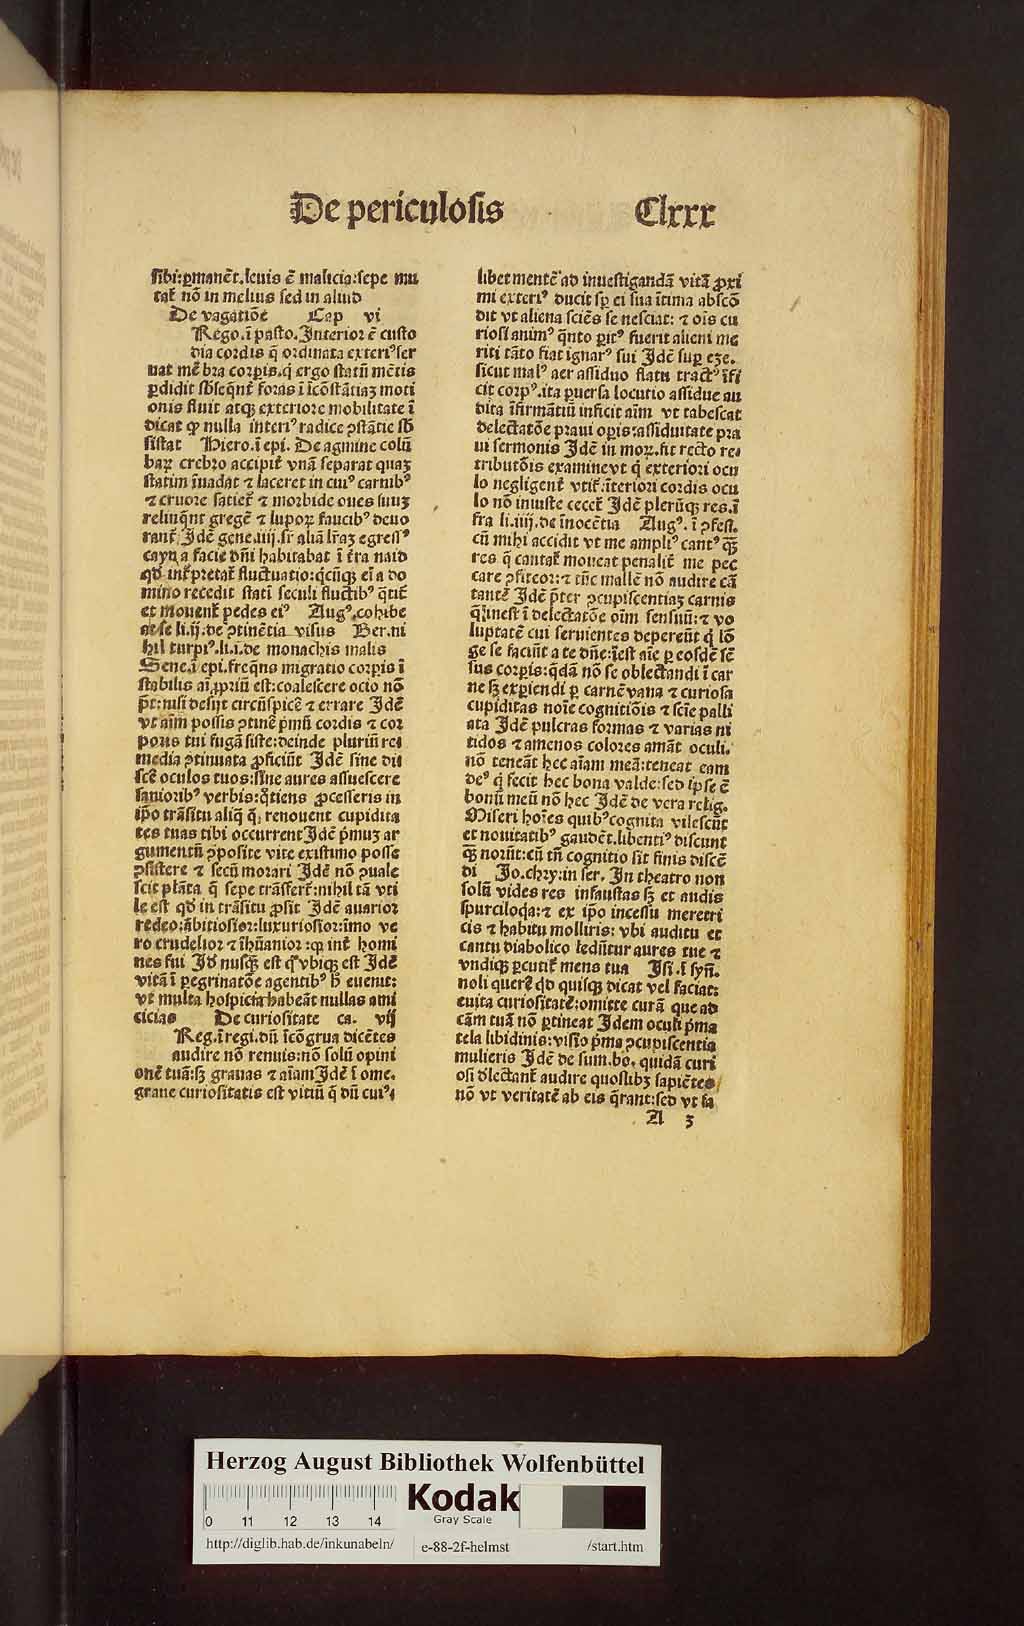 De periculosis Clxxx
sibi:ꝑmanēt.leuis ē malicia:sepe mu
tat᷑ nō in melius sed in aliud
De vagatiōe Cap vi
Rego.ī pasto.Interior ē custo
dia cordis q̄ ordinata exteriꝰ ser
uat mēbra corꝑis.q̇ ergo statū mētis
ꝑdidit sb̄seq̄nt᷑ foras ī īcōstātiaꝫ moti
onis fluit atqꝫ exteriore mobilitate ī
dicat ꝙ nulla interiꝰ radice ꝯstātie sb̄
sistat Hiero.ī epi. De agmine colū
baꝝ crebro accipit᷑ vnā separat quaꝫ
statim īuadat ⁊ laceret in cuiꝰ carnibꝰ
⁊ cruore satiet᷑ ⁊ morbide oues suuꝫ
relinq̄nt gregē ⁊ lupoꝝ faucibꝰ deuo
rant᷑ Idē gene.iiij.sr̄ aliā lr̄aꝫ egressꝰ
cayn a facie dn̄i habitabat ī t̄ra naid
qd̄ int᷑pretat᷑ fluctuatio:q̇cūqꝫ eī a do
mino recedit statī seculi fluctibꝰ q̄tit᷑
et mouent᷑ pedes eiꝰ Augꝰ.cohibe
se li.ij.de ꝯtinētia visus Ber.ni
hil turpiꝰ.li.i.de monachis malis
Sene.ī epi.freq̄ns migratio corꝑis ī
stabilis aī ꝓpriū est:coalescere ocio nō
pt̄:nisi desijt circūspicē ⁊ errare Idē
vt aīm possis ꝯtinē p̄mū cordis ⁊ cor
poris tui fugā siste:deinde pluriū re
media ꝯtinuata ꝓficiūt Idē sine dis
scē oculos tuos:sine aures assuescere
saniorib⁹ verbis:q̄tiens ꝓcesseris in
ip̄o trāsitu aliq̇ q̄ renouent cupidita
tes tuas tibi occurrent Idē p̄muꝫ ar
gumentū ꝯposite vite existimo posse
ꝯsistere ⁊ secū morari Idē nō ꝯuale
scit plāta q̄ sepe trāsfert᷑:nihil tā vti
le est qd̄ in trāsitu ꝓsit Idē auarior
redeo:ābitiosior:luxuriosior:īmo ve
ro crudelior ⁊ īhūanior:ꝙ int᷑ homi
nes fui Id nusqꝫ̄ est q̇ vbiqꝫ est Idē
vitā ī peregrinatōe agentibꝰ h̄ euenit:
vt multa hospicia habeāt nullas ami
cicias De curiositate ca. vij
Reg.ī regi.dū īcōgrua dicētes
audire nō renuis:nō solū opini
onē tuā:sꝫ grauas ⁊ aīam Idē ī ome.
graue curiositatis est vitiū q̄ dū cuiꝰ
libet mentē ad inuestigandā vitā ꝓxi
mi exteriꝰ ducit sꝑ ei sua ītima abscō
dit vt aliena sciēs se nesciat: ⁊ oīs cu
riosi animꝰ q̄nto ꝑitꝰ fuerit alieni me
riti tāto fiat ignarꝰ sui Idē suꝑ eze.
sicut malꝰ aer assiduo flatu tractꝰ īfi
cit corpꝰ.ita ꝑuersa locutio assidue au
dita īfirmātiū inficit aīm vt tabescat
delectatōe praui oꝑis:assiduitate pra
ui sermonis Idē in moꝝ.fit recto re
tributōis examine vt q̇ exteriori ocu
lo negligent᷑ vtit᷑.īteriori cordis ocu
lo nō iniuste cecet᷑ Idē plerūqꝫ res.ī
fra li.iiij.de īnocētia Augꝰ. ī ꝯfess.
cū mihi accidit vt me ampliꝰ cantꝰ qꝫ̄
res q̄ cantat᷑ moueat penalit᷑ me pec
care ꝯfiteor:⁊ tūc mallē nō audire cā
tantē Idē p̄ter ꝯcupiscentiaꝫ carnis
q̄ inest ī delectatōe oīm sensuū:⁊ vo
luptatē cui seruientes depereūt q̇ lō
ge se faciūt a te dn̄e:īest aīe ꝑ eosdē sē
sus corꝑis:q̄dā nō se oblectandi ī car
ne sꝫ exꝑiendi ꝑ carnē vana ⁊ curiosa
cupiditas noīe cognitiōis ⁊ scīe palli
ata Idē pulcras formas ⁊ varias ni
tidos ⁊ amenos colores amāt oculi.
nō teneāt hec aīam meā:teneat eam
deꝰ q̇ fecit hec bona valde:sed ipse ē
bonū meū nō hec Idē de vera relig.
Miseri hoīes quibꝰ cognita vilescūt
et nouitatibꝰ gaudēt.libentiꝰ discunt
qꝫ̄ norūt:cū tn̄ cognitio sit finis discē
di Jo.chry:in ser. In theatro non
solū vides res infaustas sꝫ et audis
spurciloqa:⁊ ex ip̄o incessu meretri
cis ⁊ habitu molliris: vbi auditu et
cantu diabolico ledūtur aures tue ⁊
vndiqꝫ ꝑcutit᷑ mens tua Isi.ī syn̄.
noli querē qd̄ quisqꝫ dicat vel faciat:
euita curiositatē:omitte curā que ad
cām tuā nō ꝑtineat Idem oculi p̄ma
tela libidinis:visio p̄ma ꝯcupiscentia
mulieris Idē de sum.bo. quidā curi
osi dlectant᷑ audire quoslibꝫ sapiētes
nō vt veritatē ab eis q̄rant:sed vt fa
A 3
Herzog August Bibliothek Wolfenbüttel
0 11 12 13 14
Kodak
Gray Scale
http://diglib.hab.de/inkunabeln/ e-88-2f-helmst /start.htm